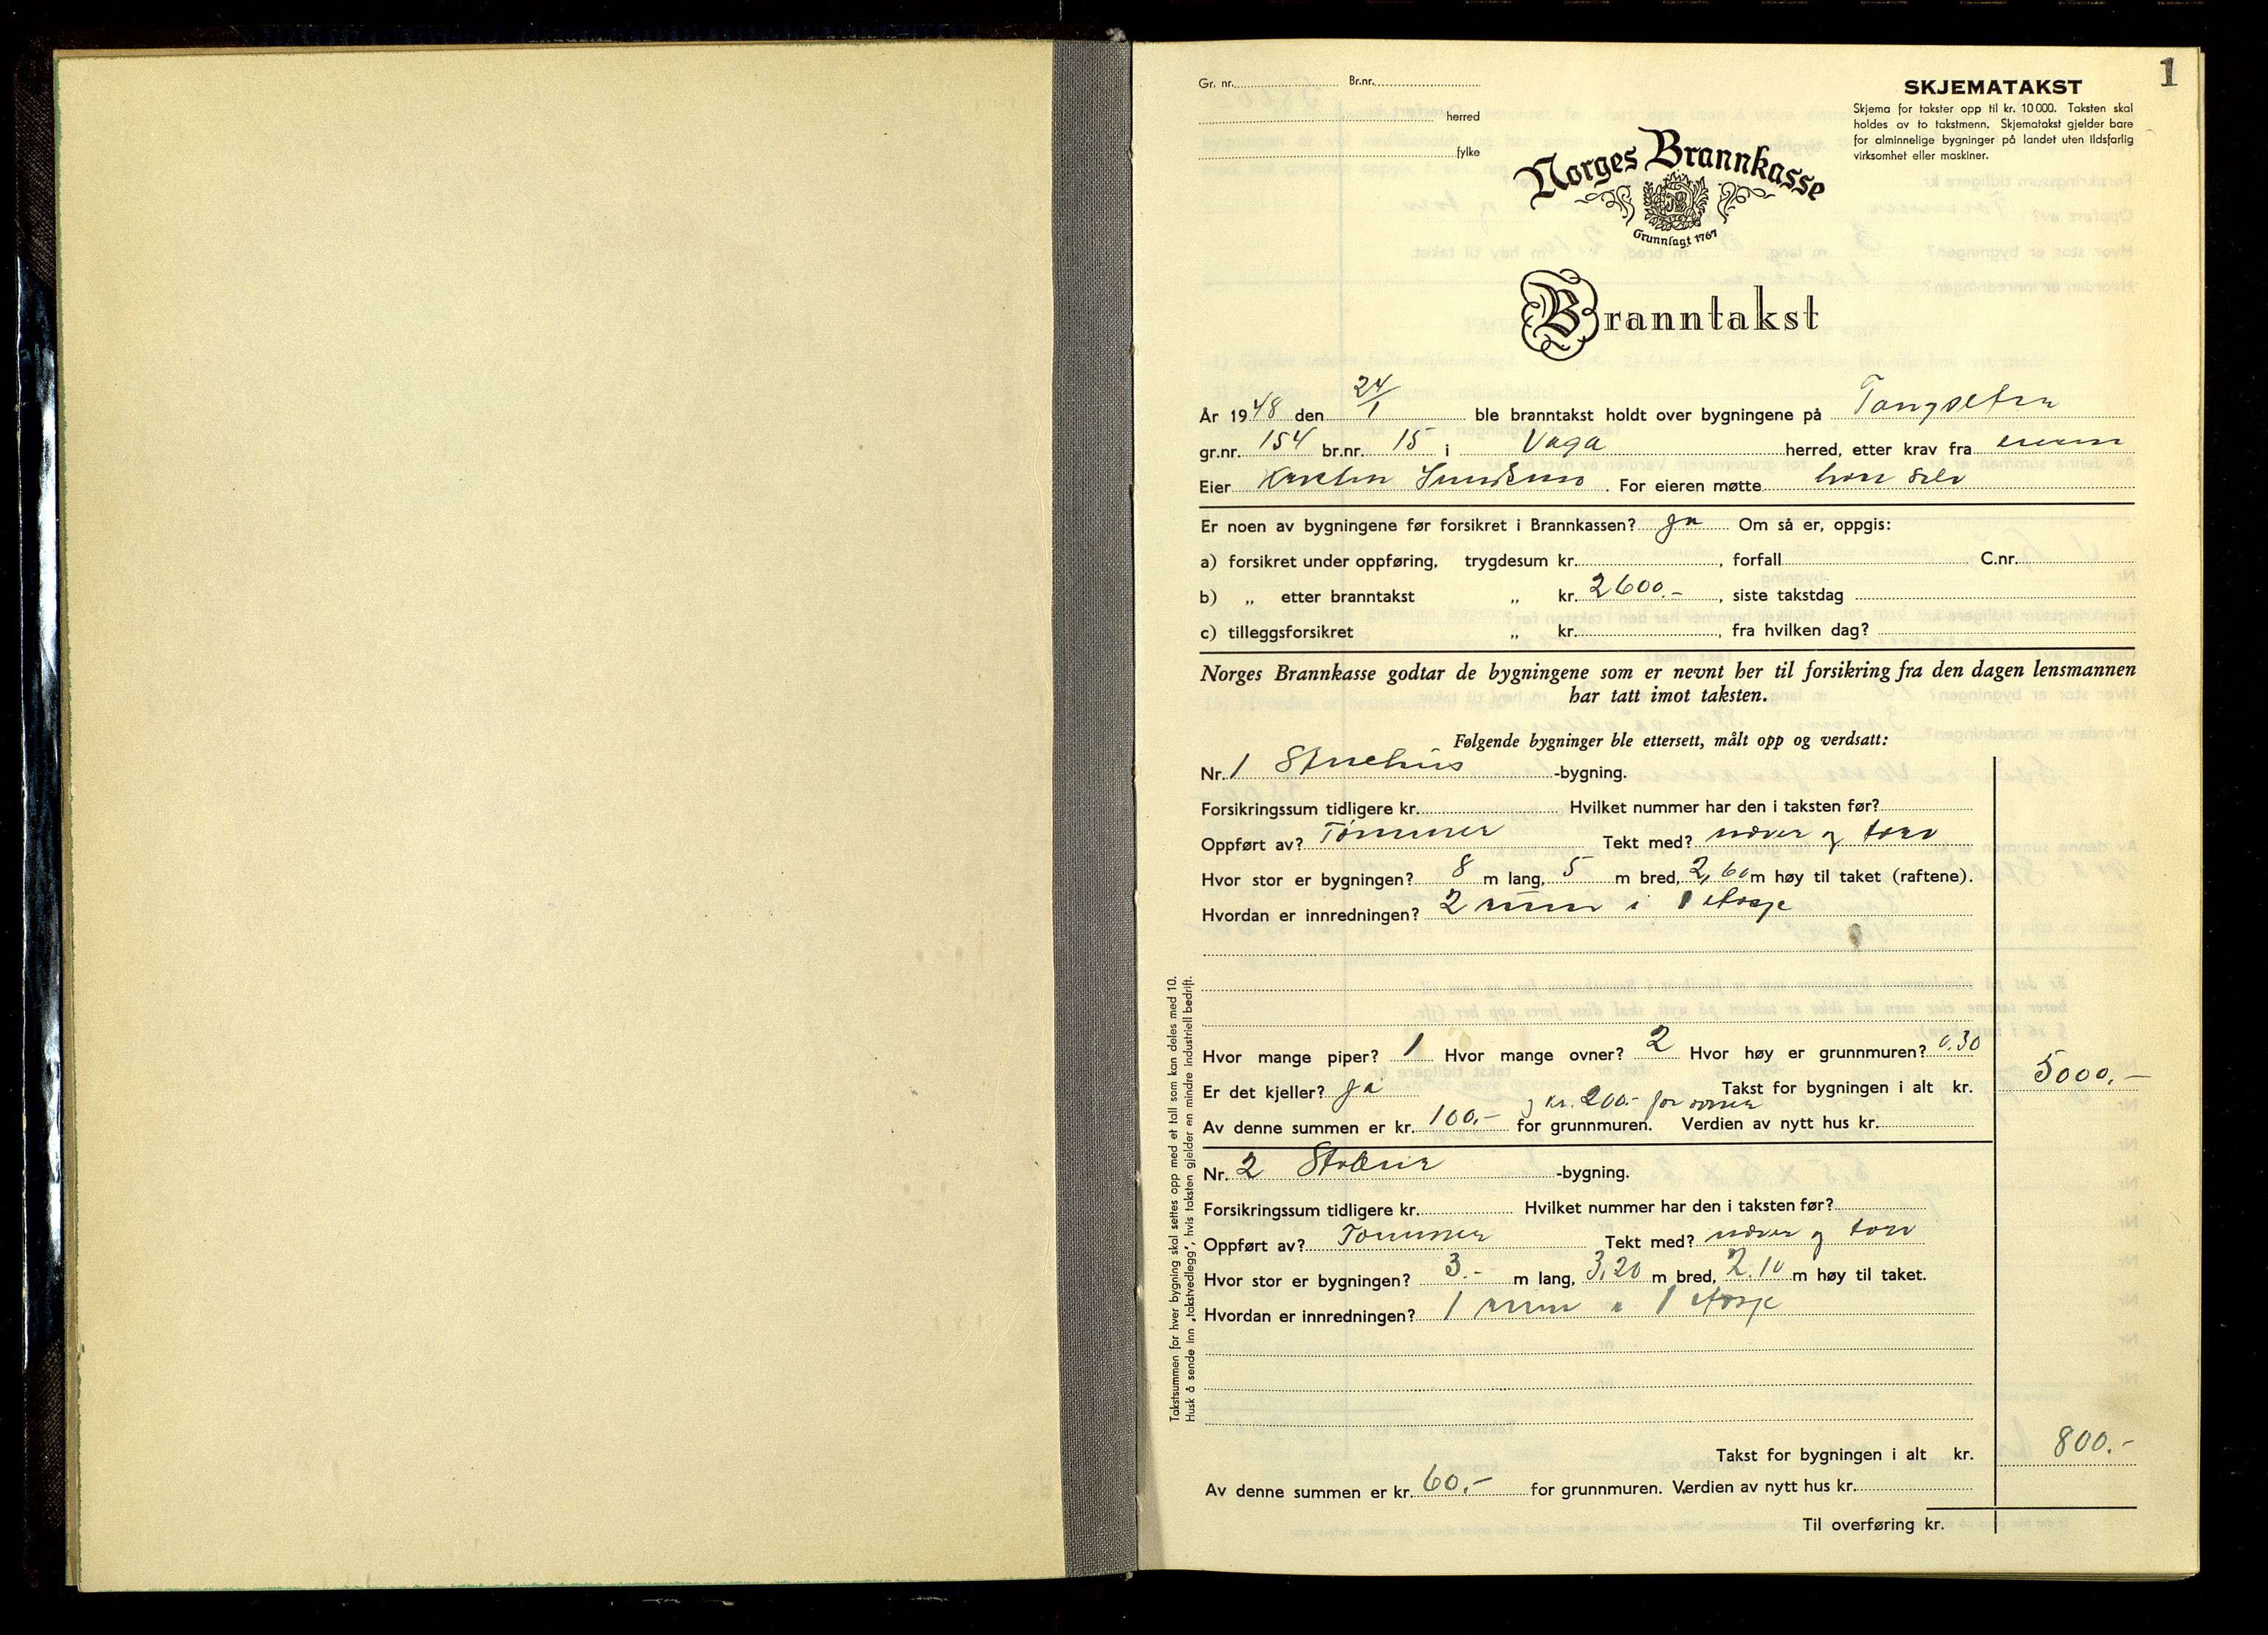 1
Gr. nr. Br.nr.
herred
fylke
SKJEMATAKST
Skjema for takster opp til kr. 10 000. Taksten skal
holdes av to takstmenn. Skjematakst gjelder bare
for alminnelige bygninger på landet uten ildsfarlig
virksomhet eller maskiner.
Norges Brannkasse
Grunnlagt 1767
Branntakst
År 1948 den 24/1 ble branntakst holdt over bygningene på
gr.nr. 154 br.nr. 15 i Vågå herred, etter krav fra eieren
Eier For eieren møtte han selv
Er noen av bygningene før forsikret i Brannkassen? ja Om så er, oppgis:
a) forsikret under oppføring, trygdesum kr. , forfall C.nr.
b) „ etter branntakst „ kr. 2600.- , siste takstdag
c) tilleggsforsikret „ kr. , fra hvilken dag?
Norges Brannkasse godtar de bygningene som er nevnt her til forsikring fra den dagen lensmannen
har tatt imot taksten.
Følgende bygninger ble ettersett, målt opp og verdsatt:
Nr. 1 Stuehus -bygning.
Forsikringssum tidligere kr. Hvilket nummer har den i taksten før?
Oppført av? Tømmer Tekt med? never og torv
Hvor stor er bygningen? 8 m lang, 5 m bred, 2,60 m høy til taket (raftene).
Hvordan er innredningen? 2 rum i 1 etasje
Hvor mange piper? 1 Hvor mange ovner? 2 Hvor høy er grunnmuren? 0.30
Er det kjeller? ja Takst for bygningen i alt kr. 5000.-
og kr. 200.- for ovner
Av denne summen er kr. 100.- for grunnmuren. Verdien av nytt hus kr.
Nr. 2 Stabur -bygning.
Forsikringssum tidligere kr. Hvilket nummer har den i taksten før?
Oppført av? Tømmer Tekt med? never og torv
Hvor stor er bygningen? 3.- m lang, 3,20 m bred, 2.10 m høy til taket.
Hvordan er innredningen? 1 rum i 1 etasje
Takst for bygningen i alt kr. 800.-
Av denne summen er kr. 60.- for grunnmuren. Verdien av nytt hus kr.
Til overføring kr.
Takstsummen for hver bygning skal settes opp med et tall som kan deles med 10.
Husk å sende inn „takstvedlegg", hvis taksten gjelder en mindre industriell bedrift.